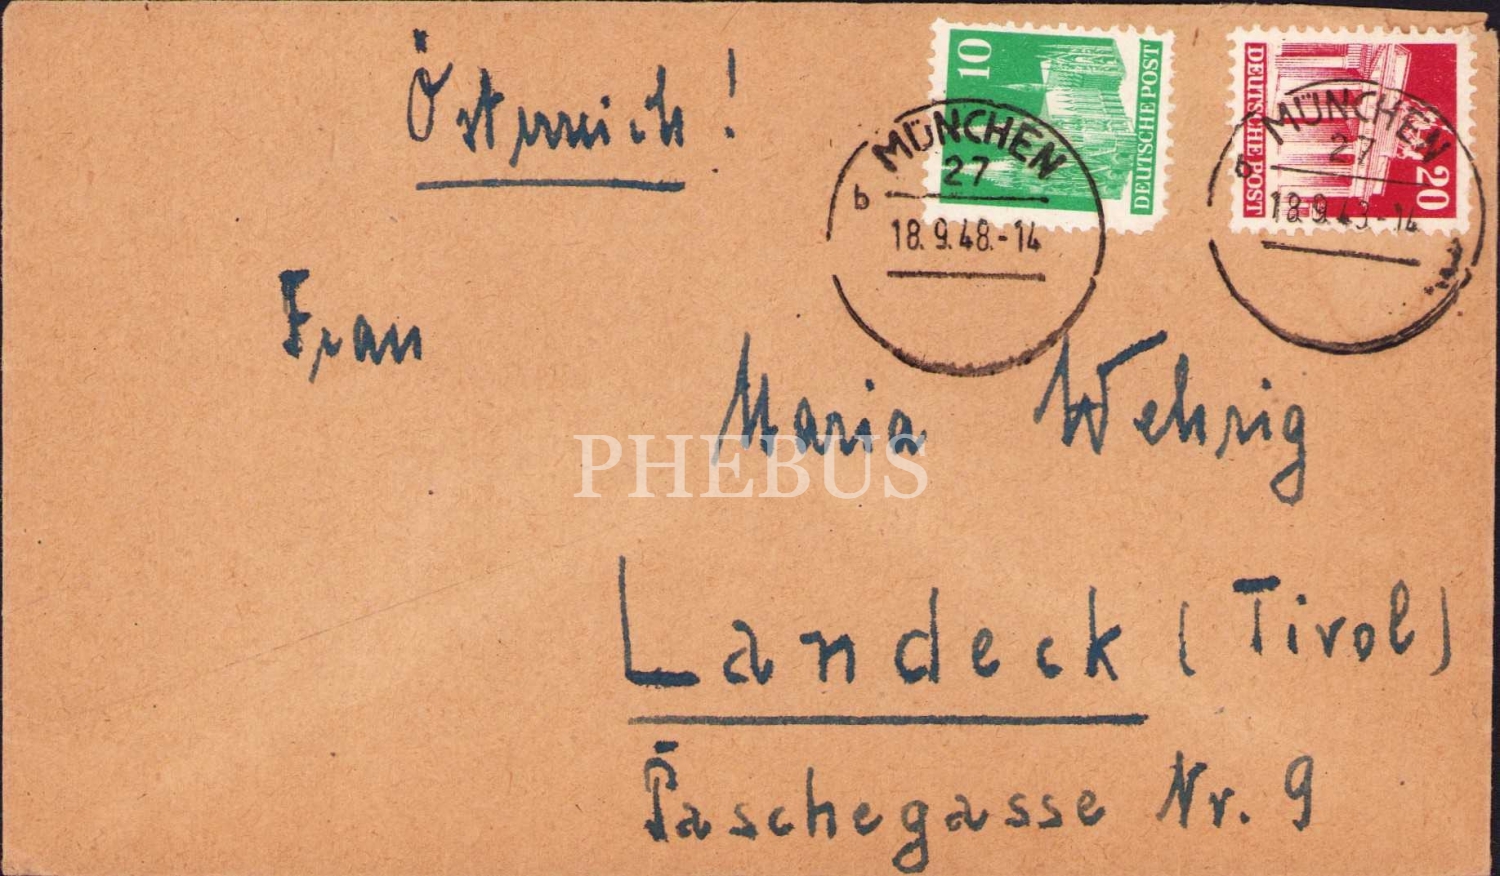 Österreich!
10
DEUTSCHE POST
DEUTSCHE POST
20
MÜNCHEN
27
b
18.9.48.-14
MÜNCHEN
27
b
18.9.43-14
Frau
Maria Wehrig
PHEBUS
Landeck (Tirol)
Paschegasse Nr. 9